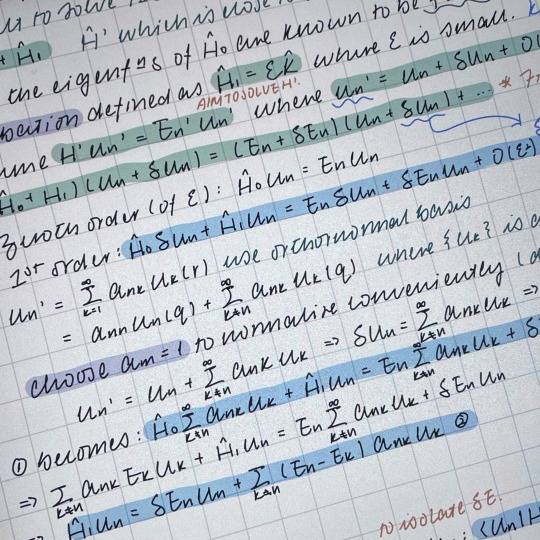 to solve Ĥ' which is
+ Ĥ₁
the eigenfns of Ĥ₀ are known to be
bation defined as Ĥ₁ = εk̂ where ε is small.
AIM TO SOLVE H'.
ume H'Un' = En'Un' where Un' = Un + δUn + O(
(Ĥ₀ + H₁)(Un + δUn) = (En + δEn)(Un + δUn) + ... *
Zeroth order (of ε): Ĥ₀Un = EnUn
1st order: Ĥ₀δUn + Ĥ₁Un = EnδUn + δEnUn + O(ε²)
Un' = ∑_{k=1}^{∞} ank Uk(r) use orthonormal basis
= ann Un(q) + ∑_{k≠n}^{∞} ank Uk(q) where {Uk} is a
choose ann = 1 to normalise conveniently (
Un' = Un + ∑_{k≠n}^{∞} ank Uk ⇒ δUn = ∑_{k≠n}^{∞} ank Uk ⇒
① becomes: Ĥ₀ ∑_{k≠n}^{∞} ank Uk + Ĥ₁Un = En ∑_{k≠n}^{∞} ank Uk + δ
⇒ ∑_{k≠n} ank Ek Uk + Ĥ₁Un = En ∑_{k≠n}^{∞} ank Uk + δEn Un
⇒ Ĥ₁Un = δEn Un + ∑_{k≠n} (En - Ek) ank Uk ②
to isolate δE.
: <Un|H